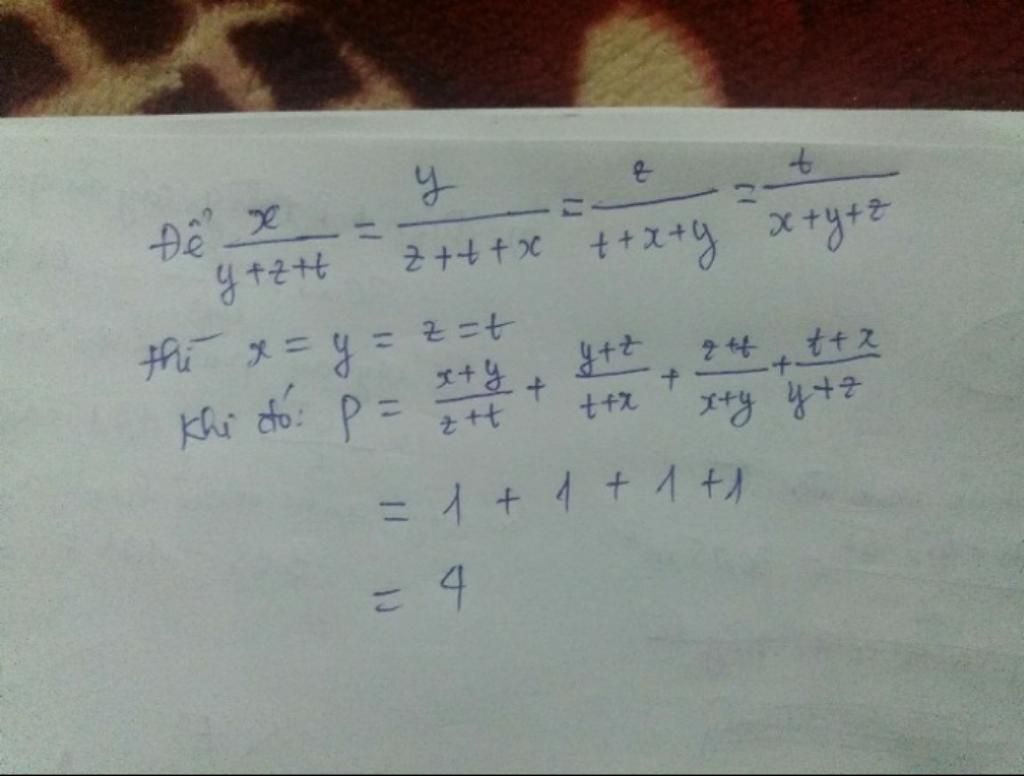 Để x/(y+z+t) = y/(z+t+x) = z/(t+x+y) = t/(x+y+z)
thì x = y = z = t
Khi đó: P = (x+y)/(z+t) + (y+z)/(t+x) + (z+t)/(x+y) + (t+x)/(y+z)
= 1 + 1 + 1 + 1
= 4